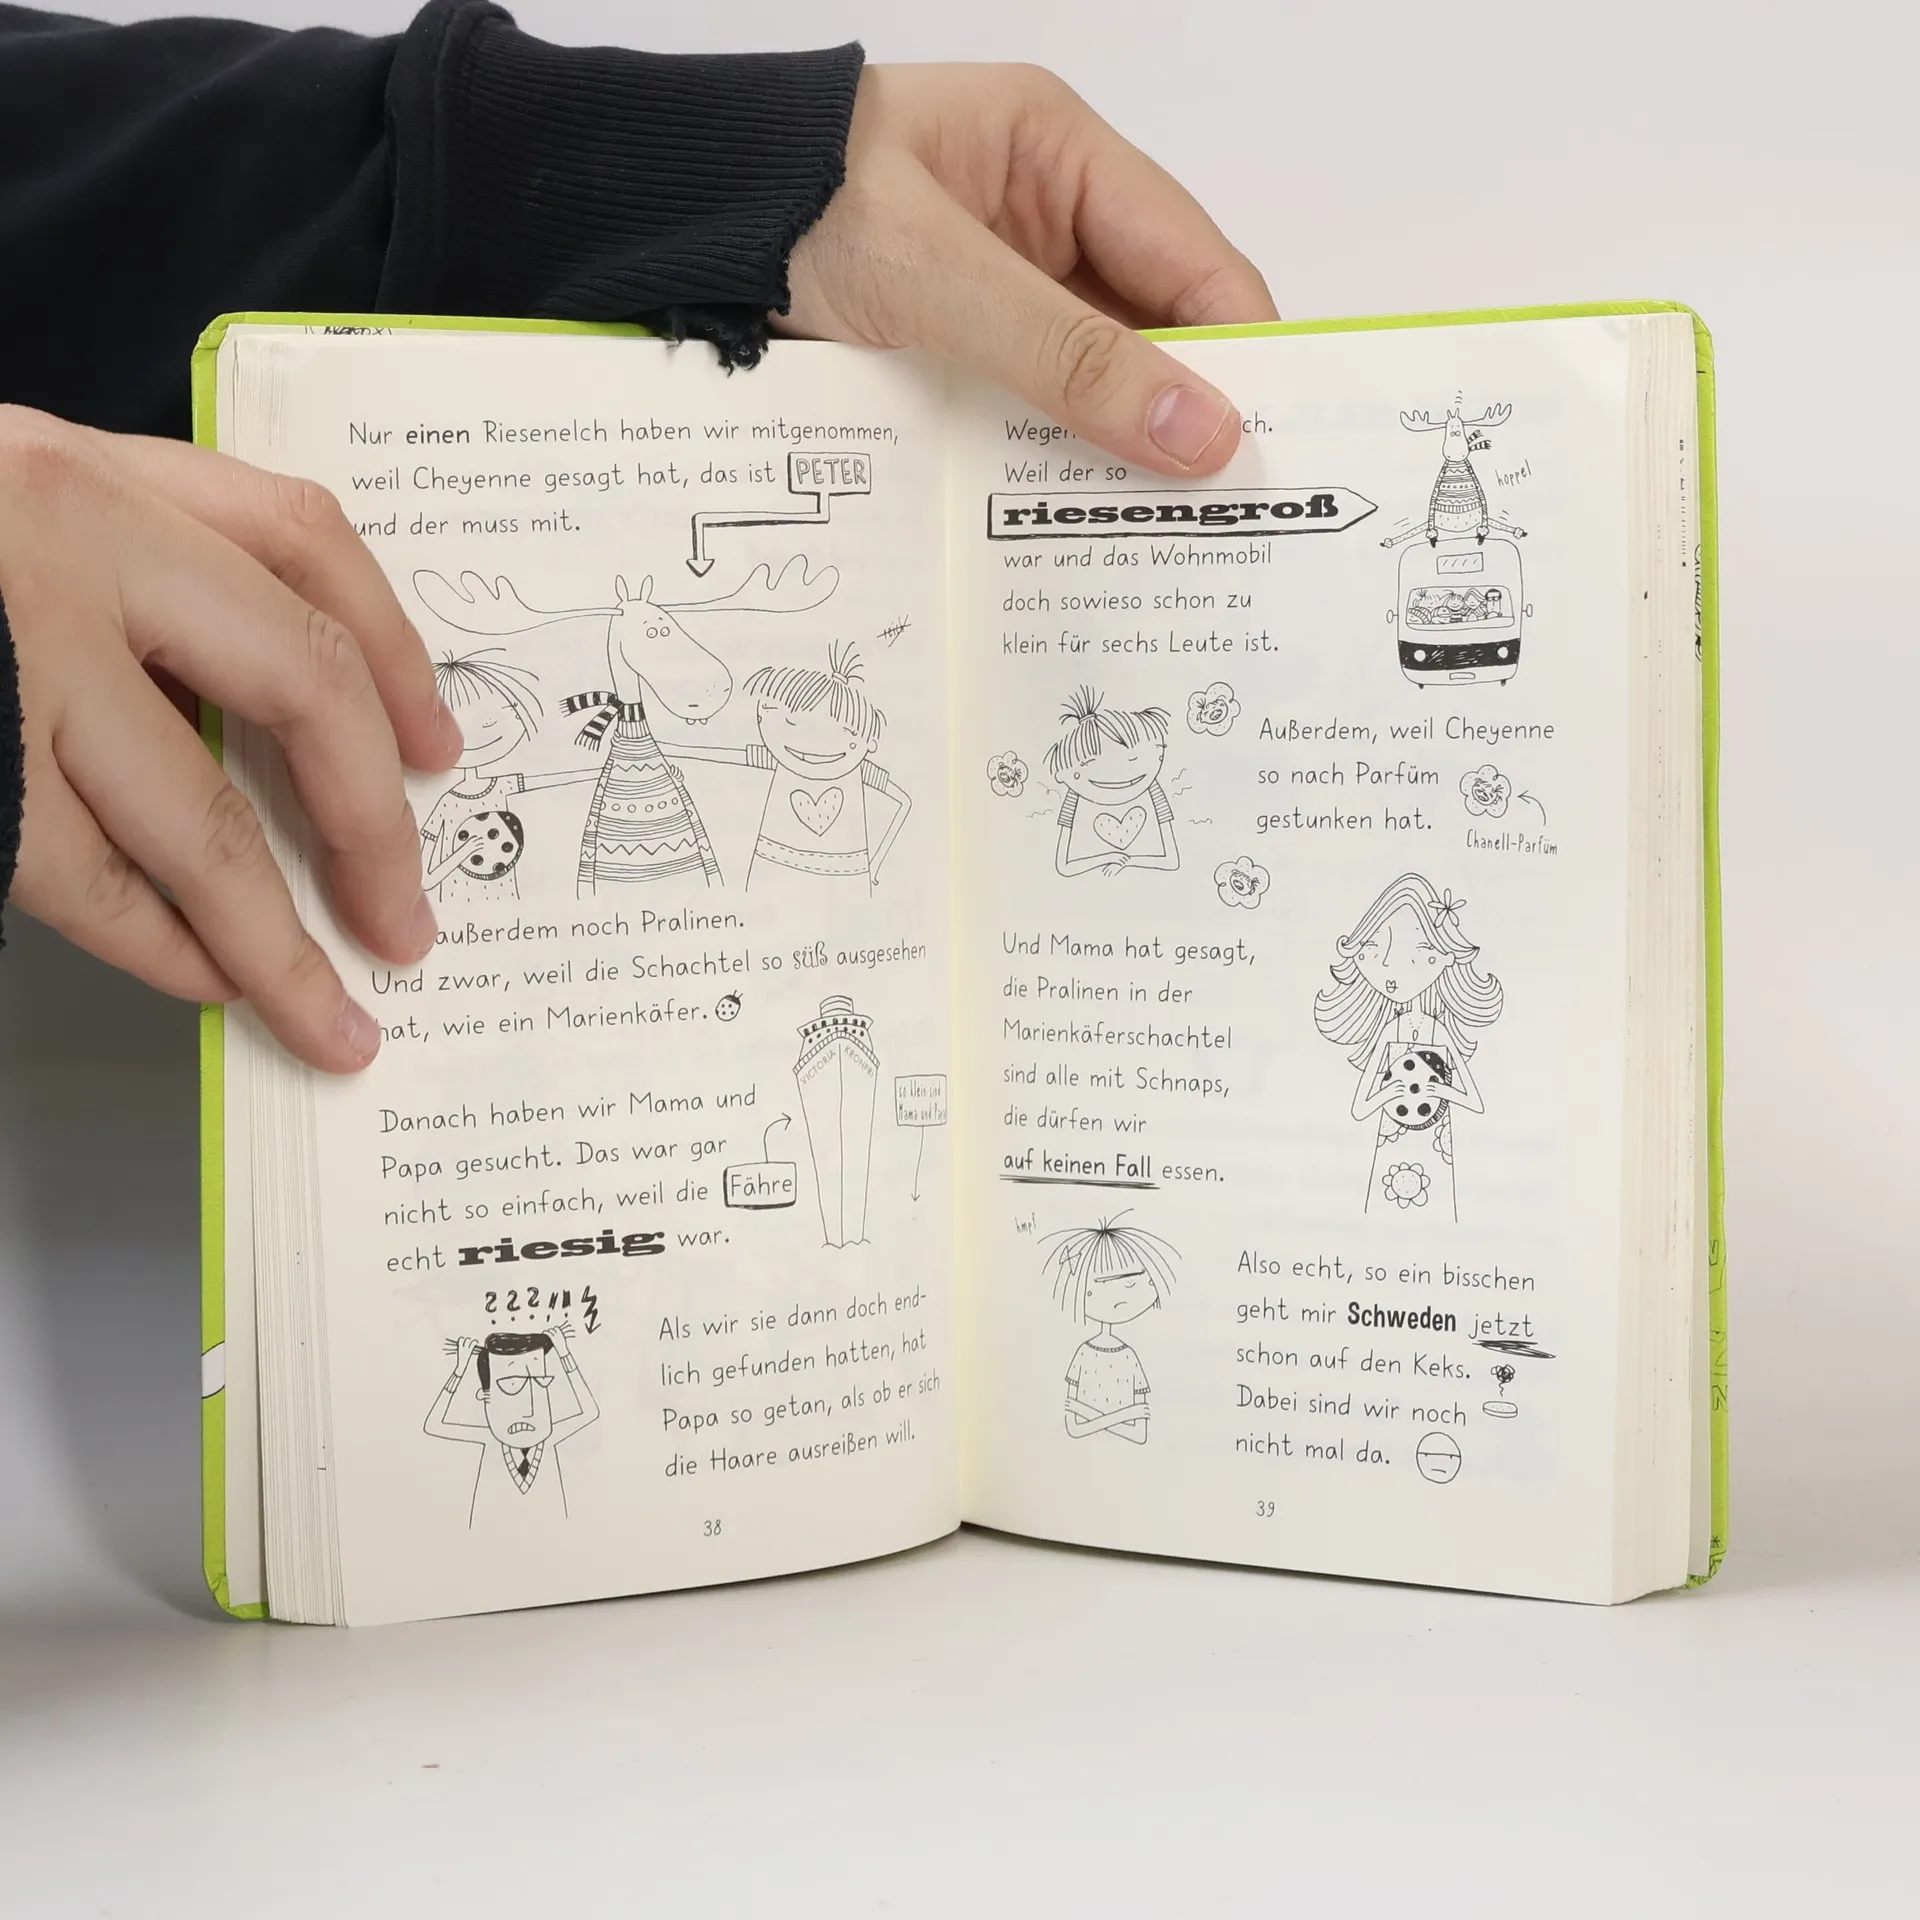 Nur einen Riesenelch haben wir mitgenommen,
weil Cheyenne gesagt hat, das ist PETER
und der muss mit.
außerdem noch Pralinen.
Und zwar, weil die Schachtel so süß ausgesehen
hat, wie ein Marienkäfer.
VICTORIA KRONPRI
so klein sind
Mama und Papa
Danach haben wir Mama und
Papa gesucht. Das war gar
nicht so einfach, weil die Fähre
echt riesig war.
???!!!
Als wir sie dann doch end-
lich gefunden hatten, hat
Papa so getan, als ob er sich
die Haare ausreißen will.
38
Weil der so
riesengroß
hoppel
war und das Wohnmobil
doch sowieso schon zu
klein für sechs Leute ist.
Außerdem, weil Cheyenne
so nach Parfüm
gestunken hat.
Chanell-Parfüm
Und Mama hat gesagt,
die Pralinen in der
Marienkäferschachtel
sind alle mit Schnaps,
die dürfen wir
auf keinen Fall essen.
hmpf
Also echt, so ein bisschen
geht mir Schweden jetzt
schon auf den Keks.
Dabei sind wir noch
nicht mal da.
39